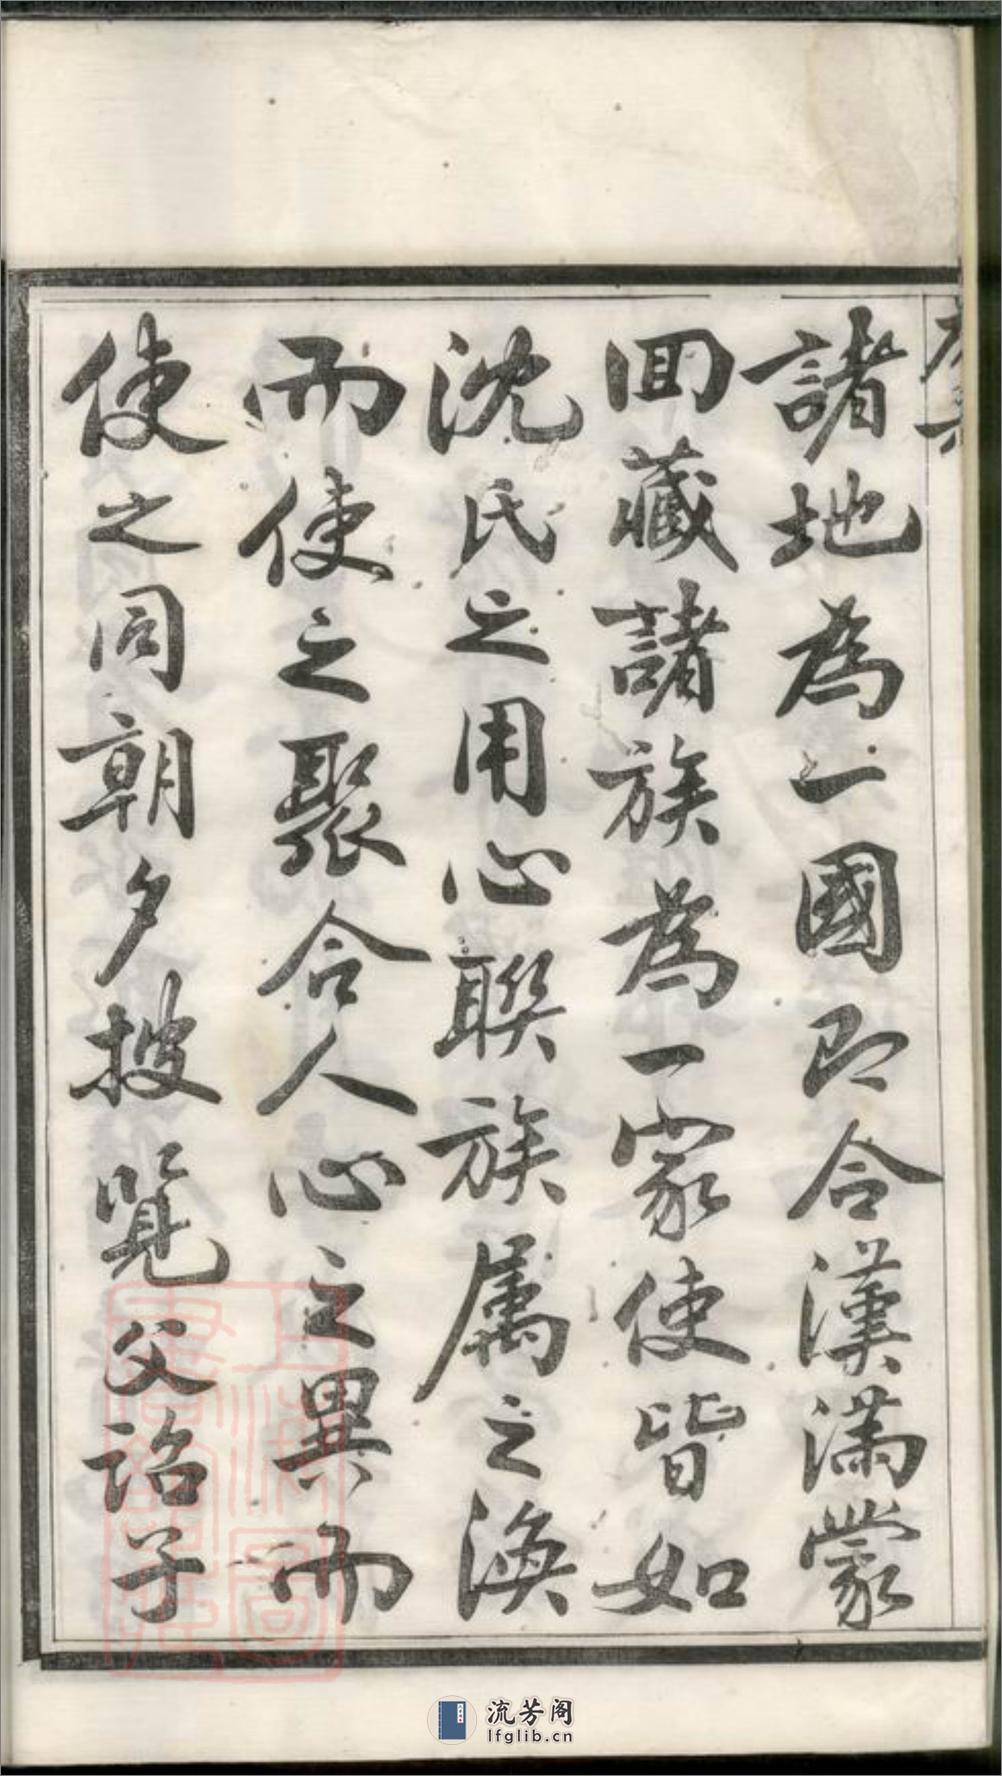 諸地為一國即合漢滿蒙
回藏諸族為一家使皆如
沈氏之用心聯族属之渙
而使之聚合人心之異而
使之同朝夕披覽父詔子
流芳阁
lfglib.cn